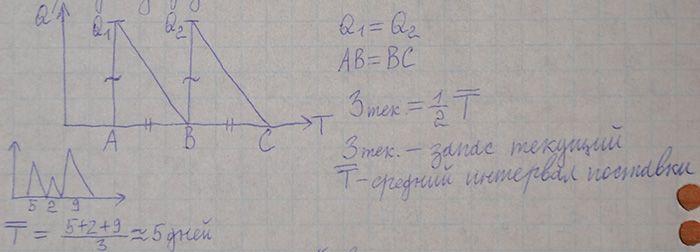 Q
Q₁ Q₂
A B C T
5 2 9
T̅ = (5+2+9)/3 ≈ 5 дней
Q₁ = Q₂
AB = BC
Зтек = 1/2 T̅
Зтек. – запас текущий
T̅ – средний интервал поставки